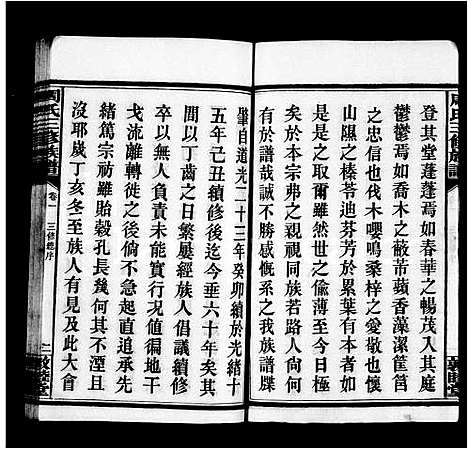 登其堂蓬蓬焉如春華之暢茂入其庭
鬱鬱焉如喬木之蔽芾蘋香藻潔筐筥
之忠信也伐木嚶鳴桑梓之敬愛也懷
山隰之榛苓迪芬芳於累葉有本者如
是是之取爾雖然世之偷漓至今日極
矣於本宗弗之親視同族若路人尚何
有於譜哉誠不勝感慨系之我族譜牒
肇自道光二十三年癸卯續於光緒十
五年己丑續修後迄今垂六十年矣其
間以丁齒之日繁屢經族人倡議續修
卒以無人負責未能實行值徧地干
戈流離轉徙之後倘不急起直追承先
緒篤宗祊雖貽穀孔長幾何其不湮且
沒耶歲丁亥冬至族人有見及此大會
周氏三修族譜
卷一
三修總序
二敦睦堂